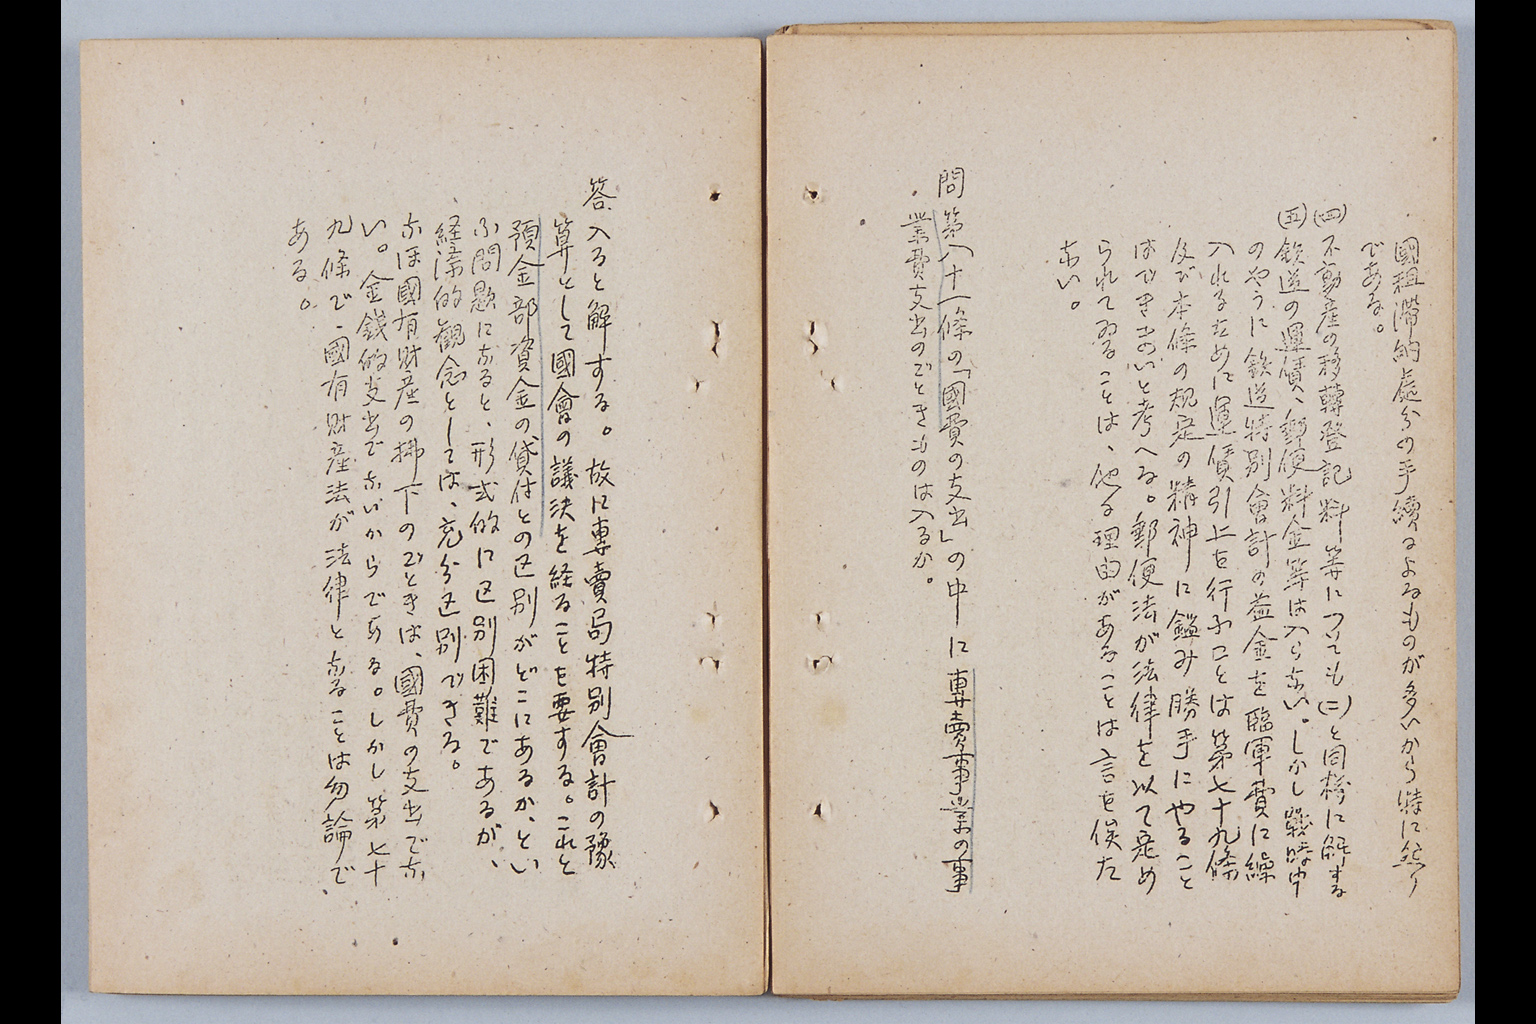 國租滯納處分の手續によるものが多いから特に然り
である。
(四)不動産の移轉登記料等についても(二)と同樣に解する
(五)鉄道の運賃、郵便料金等は入らない。しかし戰時中
のやうに鉄道特別會計の益金を臨軍費に繰
入れるために運賃引上を行ふことは第七十九條
及び本條の規定の精神に鑑み勝手にやること
はできないと考へる。郵便法が法律を以て定め
られてゐることは、他る理由があることは言を俟た
ない。
問 第八十一條の「國費の支出」の中に專賣事業の事
業費支出のごときものは入るか。
答 入ると解する。故に專賣局特別會計の豫
算として國會の議決を経ることを要する。これと
預金部資金の貸付との区別がどこにあるか、とい
ふ問題になると、形式的に区別困難であるが、
経済的観念としては、充分区別できる。
なほ國有財産の拂下のごときは、國費の支出でな
い。金錢的支出でないからである。しかし第七十
九條で、國有財産法が法律となることは勿論で
ある。